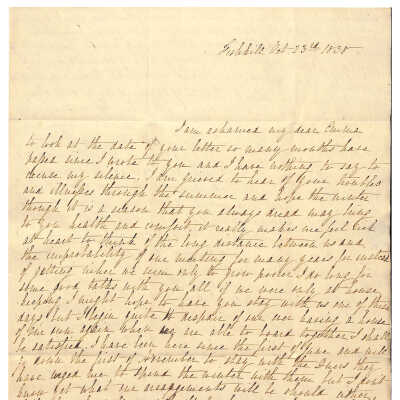 Fishkill Oct 23th 1838
I am ashamed my dear Emma
to look at the date of your letter so many months have
passed since I wrote to you and I have nothing to say to
excuse my silence. I am grieved to hear of your troubles
and illnesses through the summer and hope the winter
though it is a season that you always dread may bring
to you health and comfort it really makes me feel sick
at heart to think of the long distance between us and
the improbability of our meeting for many years for instead
of getting richer we seem only to grow poorer I do long for
some good talks with you all if we were only at house
keeping I might hope to have you stay with us one of these
days but I begin quite to despair of our ever having a house
of our own again when we are able to board together I shall
be satisfied. I have been here since the first of June and will
go down the first of November to stay with the they
have urged me to spend the winter with them but I don't
know yet what our arrangements will be should